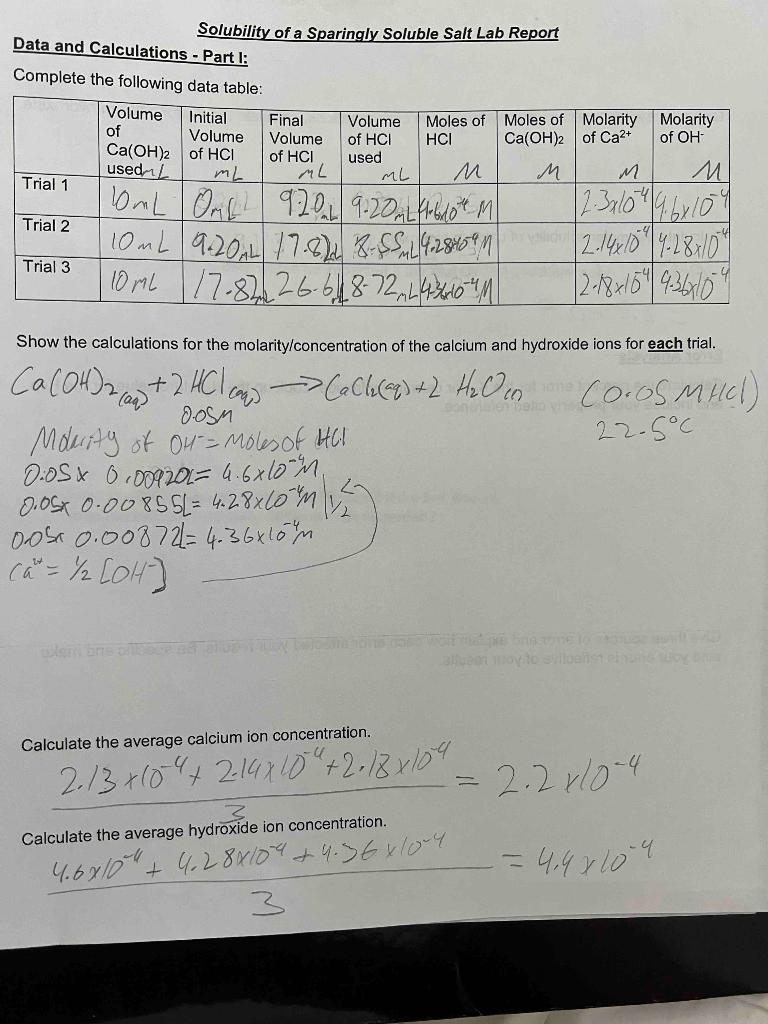 Solubility of a Sparingly Soluble Salt Lab Report
Data and Calculations - Part I:
Complete the following data table:
Volume of Ca(OH)2 used mL | Initial Volume of HCl mL | Final Volume of HCl mL | Volume of HCl used mL | Moles of HCl M | Moles of Ca(OH)2 M | Molarity of Ca2+ M | Molarity of OH- M
Trial 1 | 10mL | 0mL | 9.20mL | 9.20mL | 4.6x10-4 M | | 2.3x10-4 | 4.6x10-4
Trial 2 | 10mL | 9.20mL | 17.82mL | 8.55mL | 4.28x10-4 M | | 2.14x10-4 | 4.28x10-4
Trial 3 | 10mL | 17.82mL | 26.6mL | 8.72mL | 4.36x10-4 M | | 2.18x10-4 | 4.36x10-4
Show the calculations for the molarity/concentration of the calcium and hydroxide ions for each trial.
Ca(OH)2(aq) + 2 HCl(aq) → CaCl2(aq) + 2 H2O(l) (0.05 M HCl)
0.05M 22.5°C
Molarity of OH- = Moles of HCl
0.05x 0.00920L = 4.6x10-4M
0.05x 0.00855L = 4.28x10-4M 1/2
0.05x 0.00872L = 4.36x10-4M
Ca2+ = 1/2 [OH-]
Calculate the average calcium ion concentration.
2.13 x10-4 + 2.14x10-4 + 2.18x10-4 = 2.2 x10-4
3
Calculate the average hydroxide ion concentration.
4.6x10-4 + 4.28x10-4 + 4.36x10-4 = 4.4x10-4
3